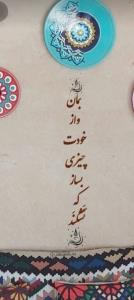 بمان
واز
خودت
چیزی
بساز
که
نشکند